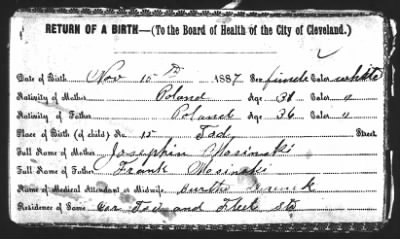 RETURN OF A BIRTH—(To the Board of Health of the City of Cleveland.)
Date of Birth Nov 15th 1887 Sex female Color white
Nativity of Mother Poland Age 31 Color "
Nativity of Father Poland Age 36 Color "
Place of Birth (of child) No. 15 Tod Street
Full Name of Mother Josephin Mosinski
Full Name of Father Frank Mosinski
Name of Medical Attendant or Midwife,
Residence of Same Cor Tod and Fleet sts